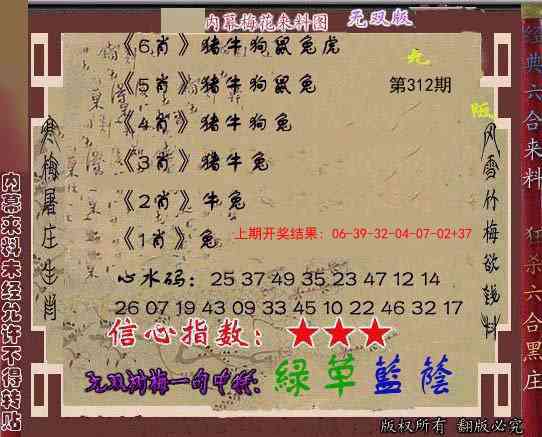 内幕梅花来料图 无双版
《6肖》猪牛狗鼠兔虎
《5肖》猪牛狗鼠兔 第312期
《4肖》猪牛狗兔
《3肖》猪牛兔
《2肖》牛兔
《1肖》兔
上期开奖结果：06-39-32-04-07-02+37
心水码：25 37 49 35 23 47 12 14
26 07 19 43 09 33 45 10 22 46 32 17
信心指数：★★★
绿草蓝荫
寒梅屠庄生肖
风雪竹梅欲钱料
内幕来料未经允许不得转贴
经典六合来料
狂杀六合黑庄
版权所有 翻版必究